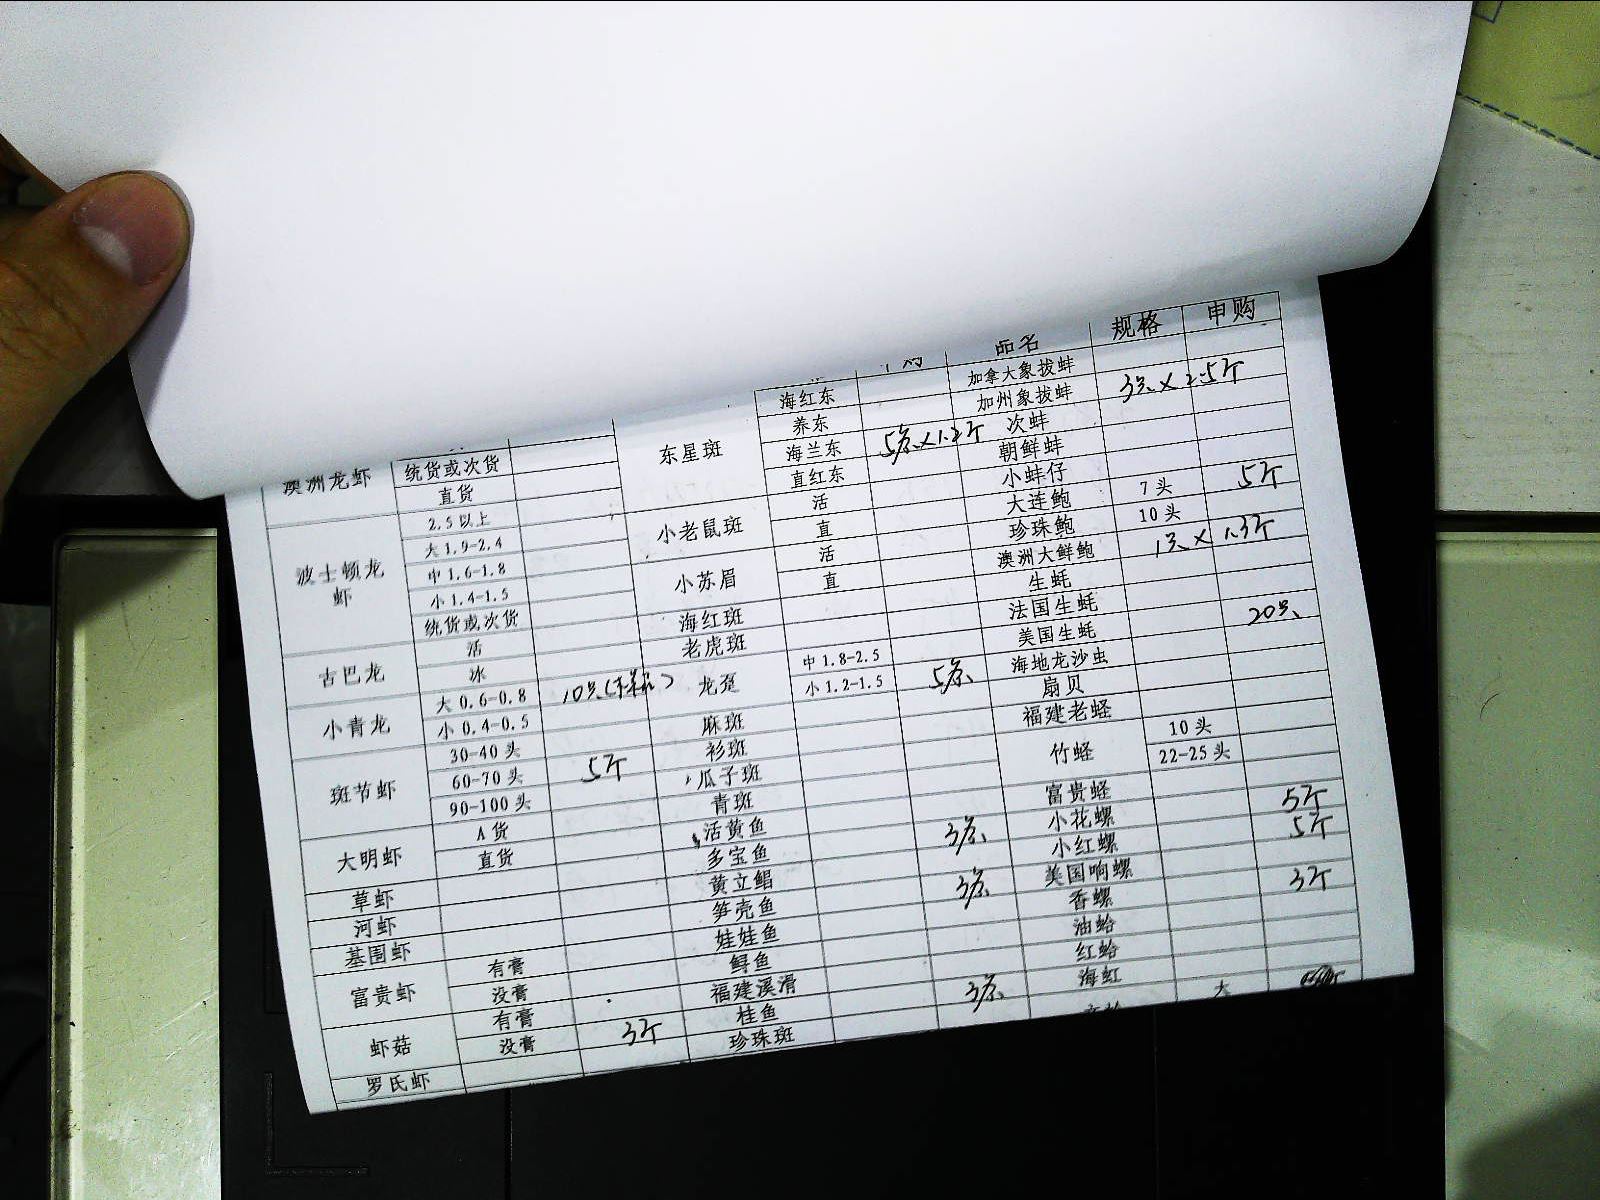 品名 规格 申购
海红东 加拿大象拔蚌
养东 加州象拔蚌 3只×2.5斤
东星斑 海兰东 5条×1.2斤 次蚌
澳洲龙虾 统货或次货 直红东 朝鲜蚌
直货 小蚌仔
2.5以上 小老鼠斑 活 大连鲍 7头 5斤
波士顿龙虾 大1.9-2.4 直 珍珠鲍 10头
中1.6-1.8 小苏眉 活 澳洲大鲜鲍 1只×1.3斤
小1.4-1.5 直 生蚝
统货或次货 海红斑 法国生蚝 20只
古巴龙 活 老虎斑 美国生蚝
冰 龙趸 中1.8-2.5 海地龙沙虫
小青龙 大0.6-0.8 小1.2-1.5 5条 扇贝
小0.4-0.5 麻斑 福建老蛏
斑节虾 30-40头 杉斑 竹蛏 10头
60-70头 5斤 瓜子斑 22-25头
90-100头 青斑 富贵蛏
大明虾 A货 活黄鱼 小花螺 5斤
直货 多宝鱼 3条 小红螺 5斤
草虾 黄立鲳 美国响螺
河虾 笋壳鱼 3条 香螺 3斤
基围虾 娃娃鱼 油蛤
富贵虾 有膏 鲟鱼 红蛤
没膏 福建溪滑 海虹
虾菇 有膏 桂鱼 3条 大
没膏 3斤 珍珠斑
罗氏虾